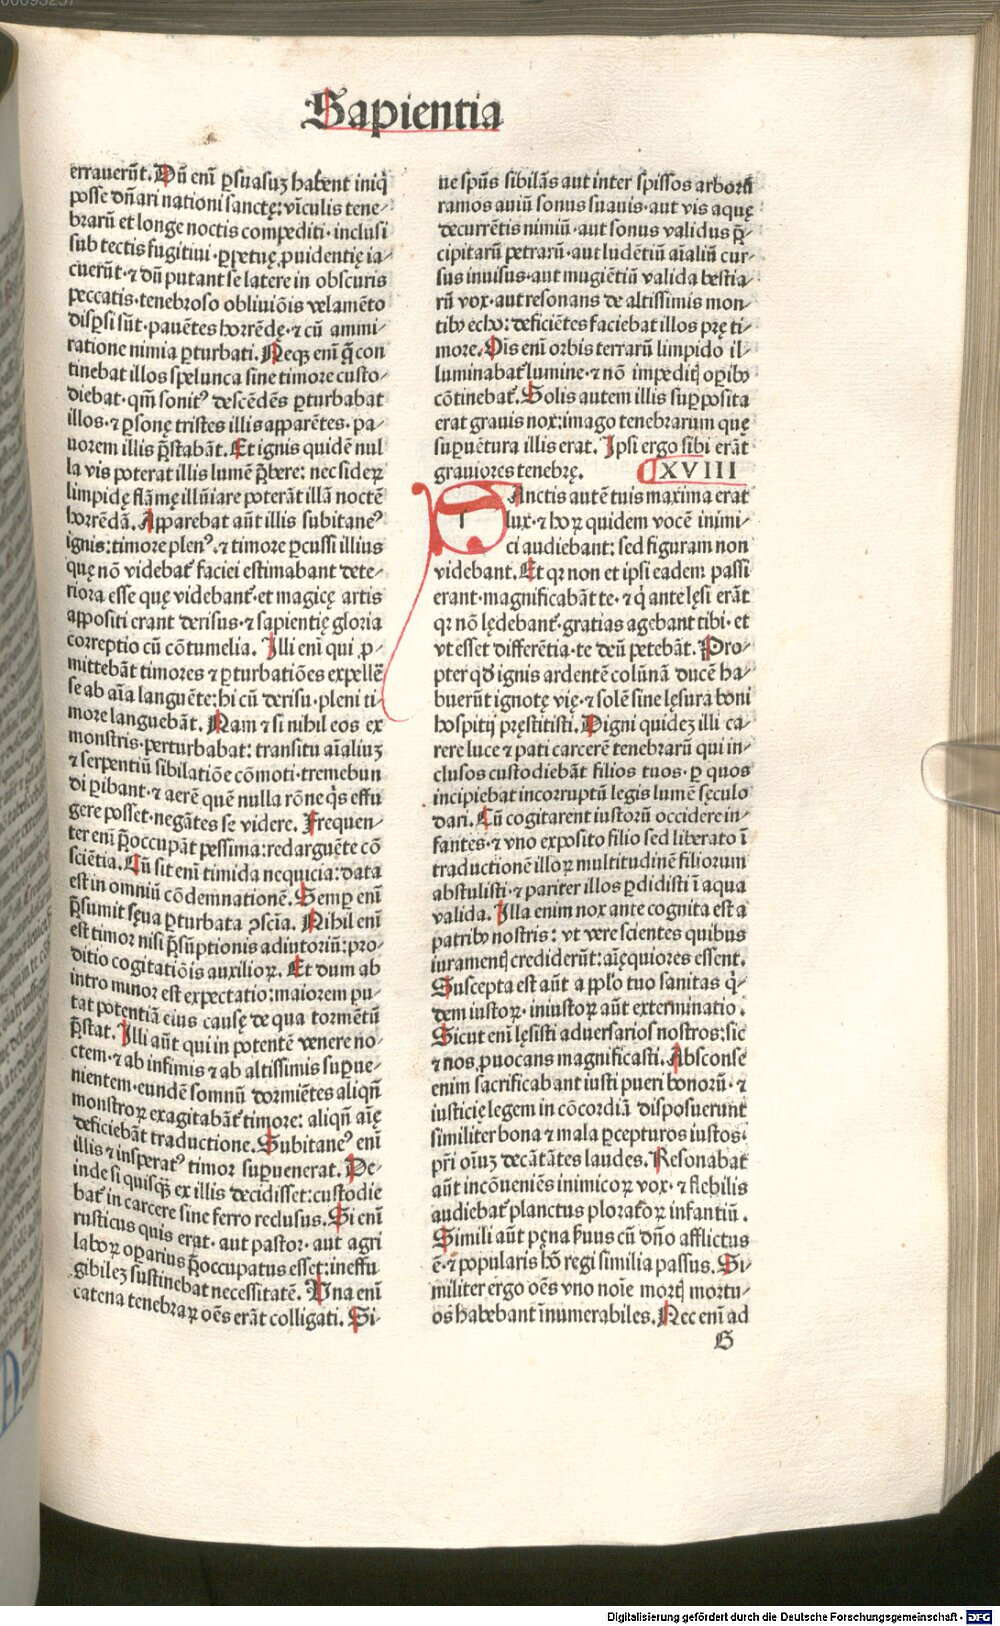 Sapientia
errauerūt. Dū enī ꝑsuasuꝫ habent iniq̄
posse dn̄ari nationi sanctę: vīculis tene⸗
brarū et longe noctis compediti · inclusi
sub tectis fugitiui · ꝑpetuę ꝓuidentię ia⸗
cuerūt · ⁊ dū putant se latere in obscuris
peccatis · tenebroso obliuiōis velamēto
disꝑsi sūt · pauētes horrēde · ⁊ cū ammi⸗
ratione nimia ꝑturbati. Neqꝫ enī q̄ con
tinebat illos spelunca sine timore custo⸗
diebat · qm̄ sonitꝰ descēdēs ꝑturbabat
illos · ⁊ ꝑsonę tristes illis apparētes · pa⸗
uorem illis p̄stabāt. Et ignis quidē nul
la vis poterat illis lumē p̄bere: nec sideꝝ
limpidę flāmę illūiare poterāt illā noctē
horrēdā. Apparebat aūt illis subitaneꝰ
ignis: timore plenꝰ · ⁊ timore ꝑcussi illius
quę nō videbat᷑ faciei estimabant dete⸗
riora esse quę videbant᷑ · et magicę artis
appositi erant derisus · ⁊ sapientię gloria
correptio cū cōtumelia. Illi enī qui ꝓ⸗
mittebāt timores ⁊ ꝑturbatiōes expellē
se ab aīa languēte: hi cū derisu · pleni ti
more languebāt. Nam ⁊ si nihil eos ex
monstris · perturbabat: transitu aīaliuꝫ
⁊ serpentiū sibilatiōe cōmoti · tremebun
di ꝑibant · ⁊ aerē quē nulla rōne q̄s effu
gere posset · negātes se videre. Frequen⸗
ter enī p̄occupāt pessima: redarguēte cō
sciētia. Cū sit enī timida nequicia: data
est in omniū cōdemnationē. Semꝑ enī
p̄sumit sęua ꝑturbata ꝯscīa. Nihil enī
est timor nisi p̄sūptionis adiutoriū: pro⸗
ditio cogitatiōis auxilioꝝ. Et dum ab
intro minor est expectatio: maiorem pu⸗
tat potentiā eius causę de qua tormētū
p̄stat. Illi aūt qui in potentē venere no⸗
ctem · ⁊ ab infimis ⁊ ab altissimis suꝑue⸗
nientem · eundē somnū dormiētes aliqn̄
monstroꝝ exagitabāt᷑ timore: aliqn̄ aīę
deficiebāt traductione. Subitaneꝰ enī
illis ⁊ insperatꝰ timor suꝑuenerat. De⸗
inde si quisqꝫ ex illis decidisset: custodie
bat᷑ in carcere sine ferro reclusus. Si enī
rusticus quis erat · aut pastor · aut agri
laboꝝ oꝑarius p̄occupatus esset: ineffu
gibileꝫ sustinebat necessitatē. Vna enī
catena tenebraꝝ oēs erāt colligati. Si⸗
ue spūs sibilās aut inter spissos arborū
ramos auiū sonus suauis · aut vis aquę
decurrētis nimiū · aut sonus validus p̄⸗
cipitarū petrarū · aut ludētiū aīaliū cur⸗
sus inuisus · aut mugiētiū valida bestia⸗
rū vox · aut resonans de altissimis mon⸗
tibꝰ echo: deficiētes faciebat illos prę ti⸗
more. Oīs enī orbis terrarū limpido il⸗
luminabat᷑ lumine · ⁊ nō impeditꝭ oꝑibꝰ
cōtinebat᷑. Solis autem illis suꝑposita
erat grauis nox: imago tenebrarum quę
suꝑuētura illis erat. Ipsi ergo sibi erāt
grauiores tenebrę.
XVIII
Sanctis autē tuis maxima erat
lux · ⁊ hoꝝ quidem vocē inimi⸗
ci audiebant: sed figuram non
videbant. Et qꝛ non et ipsi eadem passi
erant · magnificabāt te · ⁊ q̇ ante lęsi erāt
qꝛ nō lędebant᷑ · gratias agebant tibi · et
vt esset differētia · te deū petebāt. Pro⸗
pter qd̓ ignis ardentē colūnā ducē ha⸗
buerūt ignotę vię · ⁊ solē sine lęsura boni
hospitij pręstitisti. Digni quideꝫ illi ca⸗
rere luce ⁊ pati carcerē tenebrarū qui in⸗
clusos custodiebāt filios tuos · ꝑ quos
incipiebat incorruptū legis lumē sęculo
dari. Cū cogitarent iustorū occidere in⸗
fantes · ⁊ vno exposito filio sed liberato ī
traductionē illoꝝ multitudinē filiorum
abstulisti · ⁊ pariter illos ꝑdidisti ī aqua
valida. Illa enim nox ante cognita est a
patribꝰ nostris: vt vere scientes quibus
iuramentꝭ crediderūt: aīęquiores essent.
Suscepta est aūt a pplo tuo sanitas q̇⸗
dem iustoꝝ · iniustoꝝ aūt exterminatio.
Sicut enī lęsisti aduersarios nostros: sic
⁊ nos ꝓuocans magnificasti. Absconse
enim sacrificabant iusti pueri bonorū · ⁊
iusticię legem in cōcordiā disposuerunt
similiter bona ⁊ mala ꝑcepturos iustos ·
pr̄i oīuꝫ decātātes laudes. Resonabat
aūt incōueniēs inimicoꝝ vox · ⁊ flebilis
audiebat᷑ planctus ploratoꝝ infantiū.
Simili aūt pęna ẜuus cū dn̄o afflictus
ē · ⁊ popularis hō regi similia passus. Si⸗
militer ergo oēs vno noīe mortꝭ mortu⸗
os habebant īnumerabiles. Nec enī ad
G
Digitalisierung gefördert durch die Deutsche Forschungsgemeinschaft · DFG